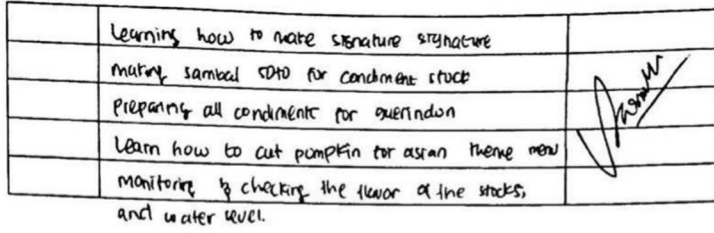 Learning how to make signature signature
making sambal soto for condiment stock
preparing all condiments for
Learn how to cut pumpkin for asian theme menu
monitoring & checking the flavor of the stocks,
and water level.